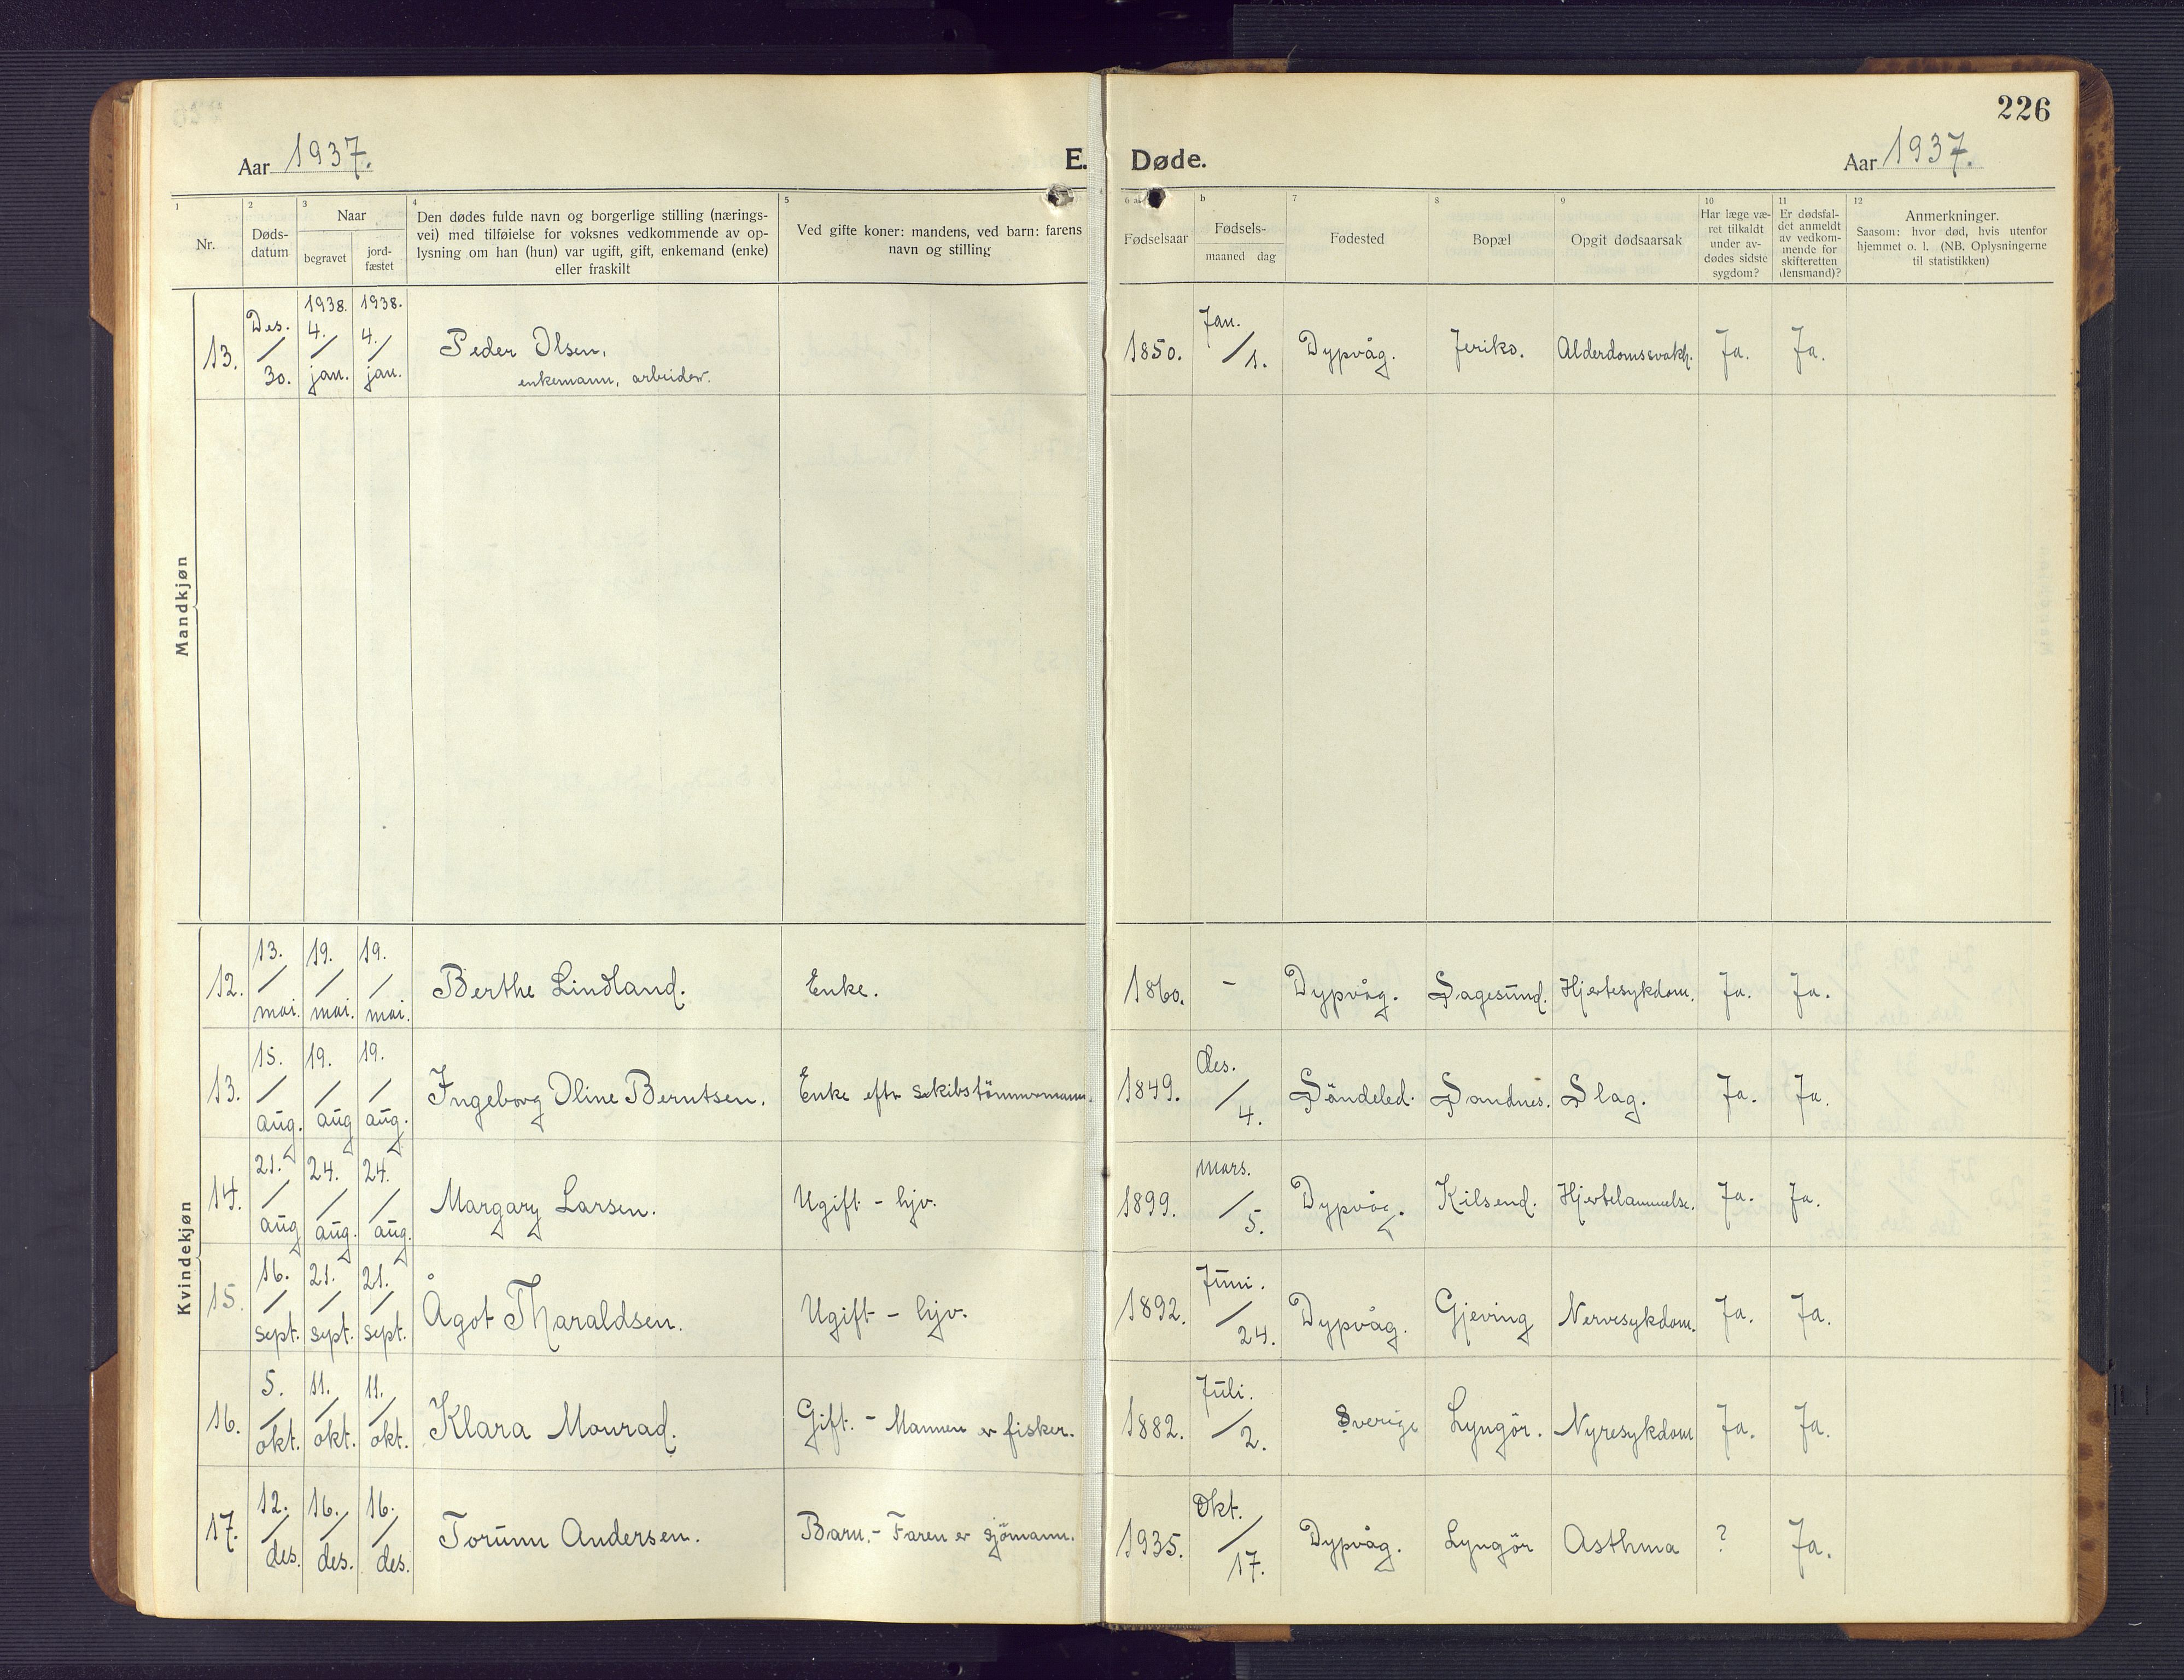 226
Aar 1937.
E. Døde.
Aar 1937.
1 2 3 4 5 6 a b 7 8 9 10 11 12
Nr.
Døds-
datum
Naar
begravet
jord-
fæstet
Den dødes fulde navn og borgerlige stilling (nærings-
vei) med tilføielse for voksnes vedkommende av op-
lysning om han (hun) var ugift, gift, enkemand (enke)
eller fraskilt
Ved gifte koner: mandens, ved barn: farens
navn og stilling
Fødselsaar
Fødsels-
maaned dag
Fødested
Bopæl
Opgit dødsaarsak
Har læge væ-
ret tilkaldt
under av-
dødes sidste
sygdom?
Er dødsfal-
det anmeldt
av vedkom-
mende for
skifteretten
(lensmand)?
Anmerkninger.
Saasom: hvor død, hvis utenfor
hjemmet o. l. (NB. Oplysningerne
til statistikken)
Mandkjøn
13. Des./30. 1938. 4./jan. 1938. 4./jan. Peder Olsen, 1850. Jan./1. Dypvåg. Jeriko. Alderdomssvakh. Ja. Ja.
enkemann, arbeider.
Kvindekjøn
12. 13./mai. 19./mai. 19./mai. Berthe Lindland. Enke. 1860. - Dypvåg. Sagesund. Hjertesykdom. Ja. Ja.
13. 15./aug. 19./aug 19./aug. Ingeborg Oline Berntsen. Enke eftr skibstömmermann. 1849. Des./4. Söndeled. Sandnes. Slag. Ja. Ja.
14. 21./aug 24./aug. 24./aug. Margary Larsen. Ugift - hjv. 1899. Mars./5. Dypvåg. Kilsend. Hjertelammelse. Ja. Ja.
15. 16./sept. 21./sept. 21./sept. Ågot Tharaldsen. Ugift - hjv. 1892. Juni./24. Dypvåg. Gjeving Nervesykdom. Ja. Ja.
16. 5./okt. 11./okt. 11./okt. Klara Monrad. Gift. - Mannen er fisker. 1882. Juli./2. Sverige Lyngör. Nyresykdom Ja. Ja.
17. 12./des. 16./des. 16./des. Torunn Andersen. Barn. - Faren er sjömann. 1935. Okt./17. Dypvåg. Lyngör Asthma ? Ja.